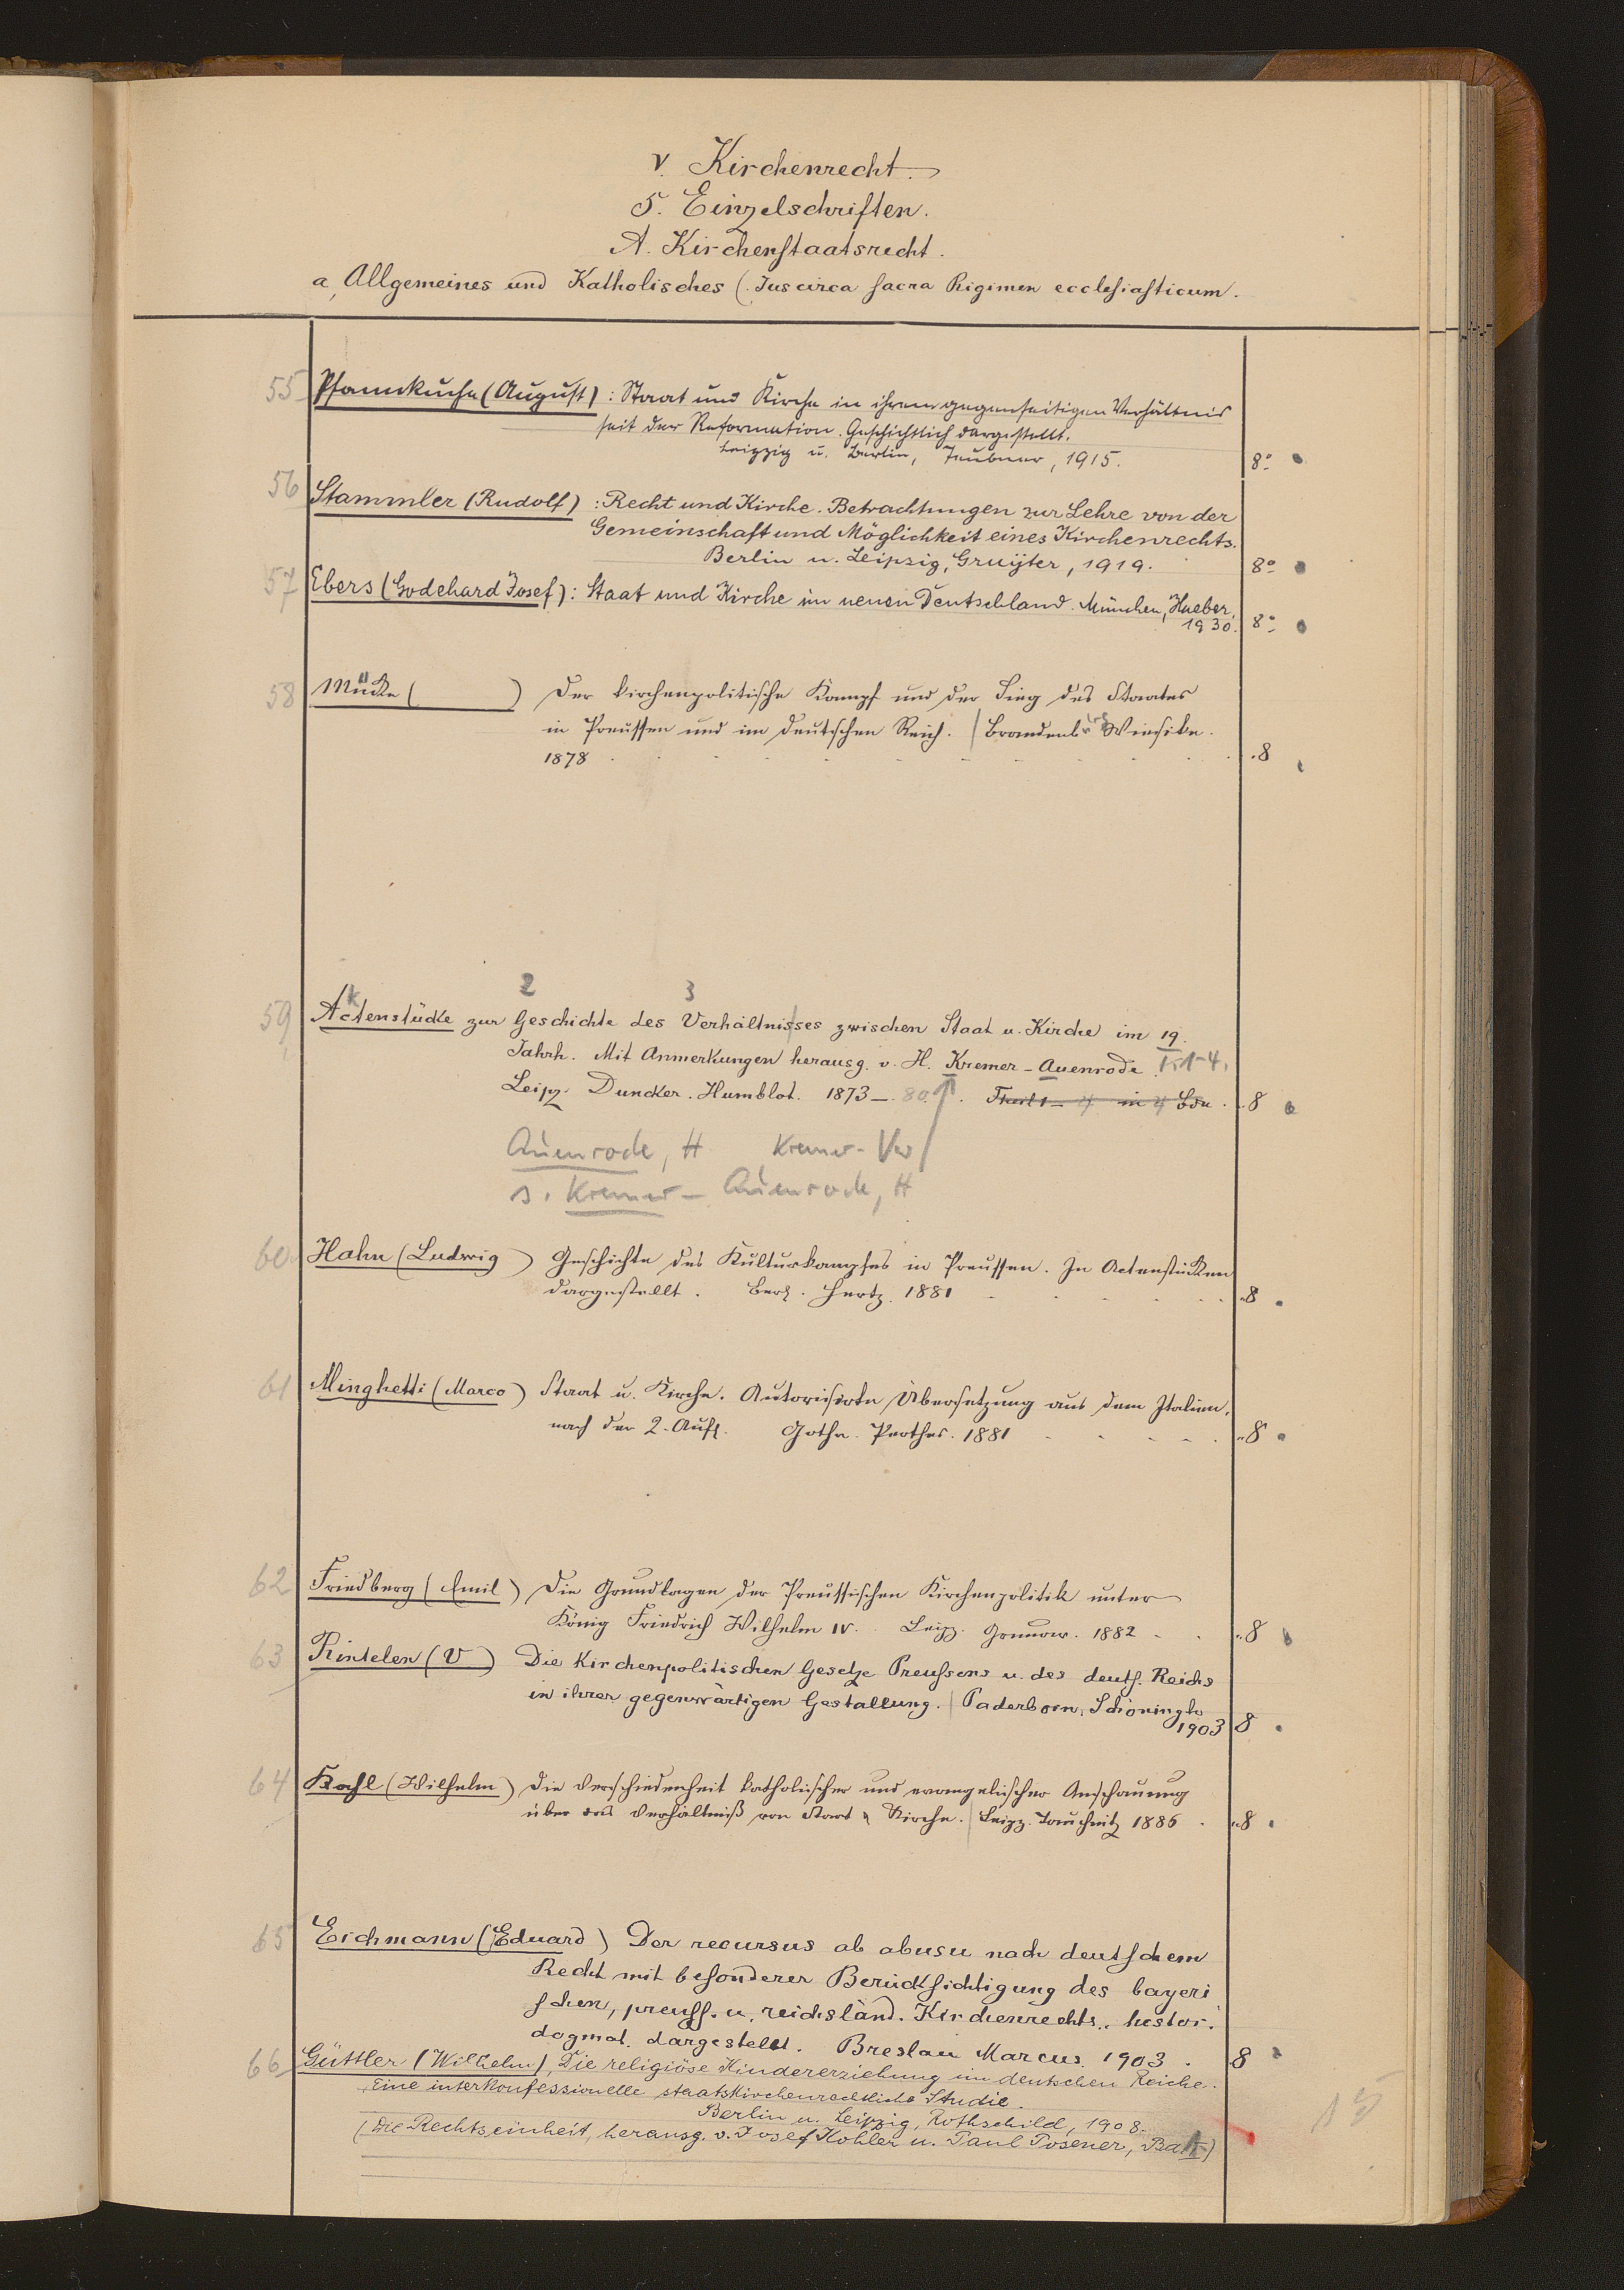 V. Kirchenrecht.
5. Einzelschriften.
A. Kirchenstaatsrecht.
a, Allgemeines und Katholisches (Jus circa sacra Rigimen ecclesiasticum.
55 Pfannkuche (August) : Staat und Kirche in ihrem gegenseitigen Verhältnis
seit der Reformation. Geschichtlich dargestellt.
Leipzig u. Berlin, Teubner, 1915. 8°
56 Stammler (Rudolf) : Recht und Kirche. Betrachtungen zur Lehre von der
Gemeinschaft und Möglichkeit eines Kirchenrechts.
Berlin u. Leipzig, Gruyter, 1919. 8°
57 Ebers (Godehard Josef) : Staat und Kirche im neuen Deutschland. München, Hueber,
1930. 8°
58 Mücke ( ) Der kirchenpolitische Kampf und der Sieg des Staates
in Preussen und im deutschen Reich. | Brandenb. Wiesike.
1878 . 8
2 3
59 Actenstücke zur Geschichte des Verhältnisses zwischen Staat u. Kirche im 19.
Jahrh. Mit Anmerkungen herausg. v. H. Kremer-Auenrode. 1-4.
Leipz. Duncker. Humblot. 1873 - 80. Theil 1 - 4 in 4 Bdn. 8
Auenrode, H Kremer- Vw
s. Kremer - Auenrode, H
60 Hahn (Ludwig) Geschichte des Kulturkampfes in Preussen. In Actenstücken
dargestellt. Berl. Hertz. 1881 8
61 Minghetti (Marco) Staat u. Kirche. Autorisirte Übersetzung aus dem Italien.
nach der 2. Aufl. Gotha. Perthes. 1881 8
62 Friedberg (Emil) Die Grundlagen der Preussischen Kirchenpolitik unter
König Friedrich Wilhelm IV. Leipz. Grunow. 1882 8
63 Rintelen (V) Die Kirchenpolitischen Gesetze Preussens u. des deuts. Reichs
in ihrer gegenwärtigen Gestaltung. | Paderborn, Schöningh
1903 8
64 Kahl (Wilhelm) Die Verschiedenheit katholischer und evangelischer Anschauung
über das Verhältniß von Staat u Kirche. | Leipz. Tauchnitz 1886 8
65 Eichmann (Eduard) Der recursus ab abusu nach deutschem
Recht mit besonderer Berücksichtigung des bayeri
schen, preuss. u. reichsländ. Kirchenrechts. histor.
dogmat. dargestellt. Breslau Marcus. 1903. 8
66 Güttler (Wilhelm), Die religiöse Kindererziehung im deutschen Reiche.
Eine interkonfessionelle staatskirchenrechtliche Studie.
Berlin u. Leipzig, Rothschild, 1908.
(Die Rechtseinheit, herausg. v. Josef Kohler u. Paul Posener,
15